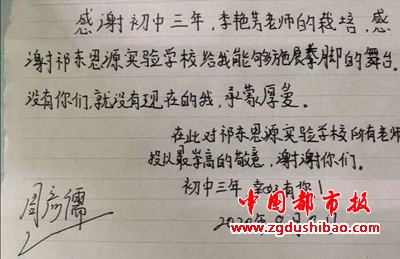 感谢初中三年，李艳芳老师的栽培，感
谢对祁东恩源实验学校给我能够施展拳脚的舞台。
没有你们，就没有现在的我，承蒙厚曼。
在此对祁东恩源实验学校所有老师
投以最崇高的敬意，谢谢你们。
初中三年 幸好有你！
周彦儒
中国都市报
www.zgdushibao.com